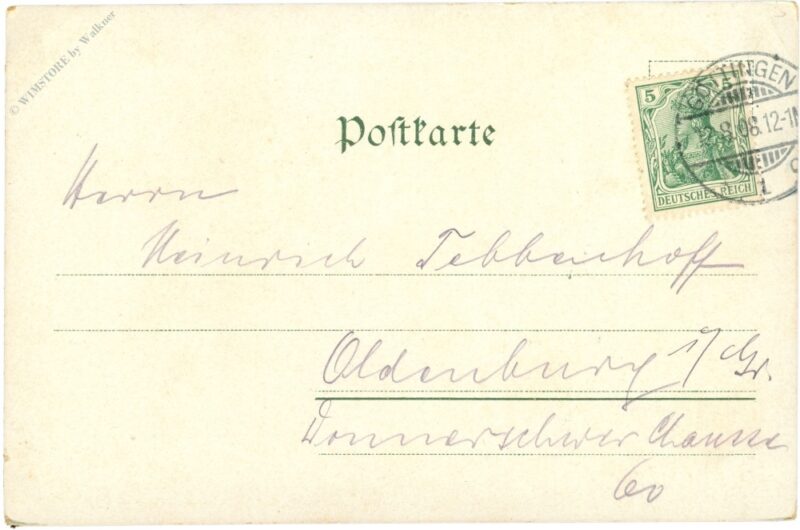 © WIMSTORE by Walkner
Postkarte
5 5
DEUTSCHES REICH
GÖTTINGEN
2.8.08.12-1N
1 c
Herrn
Heinrich Tebbenhoff
Oldenburg i/Gr.
Donnerschwer Chaussee
60